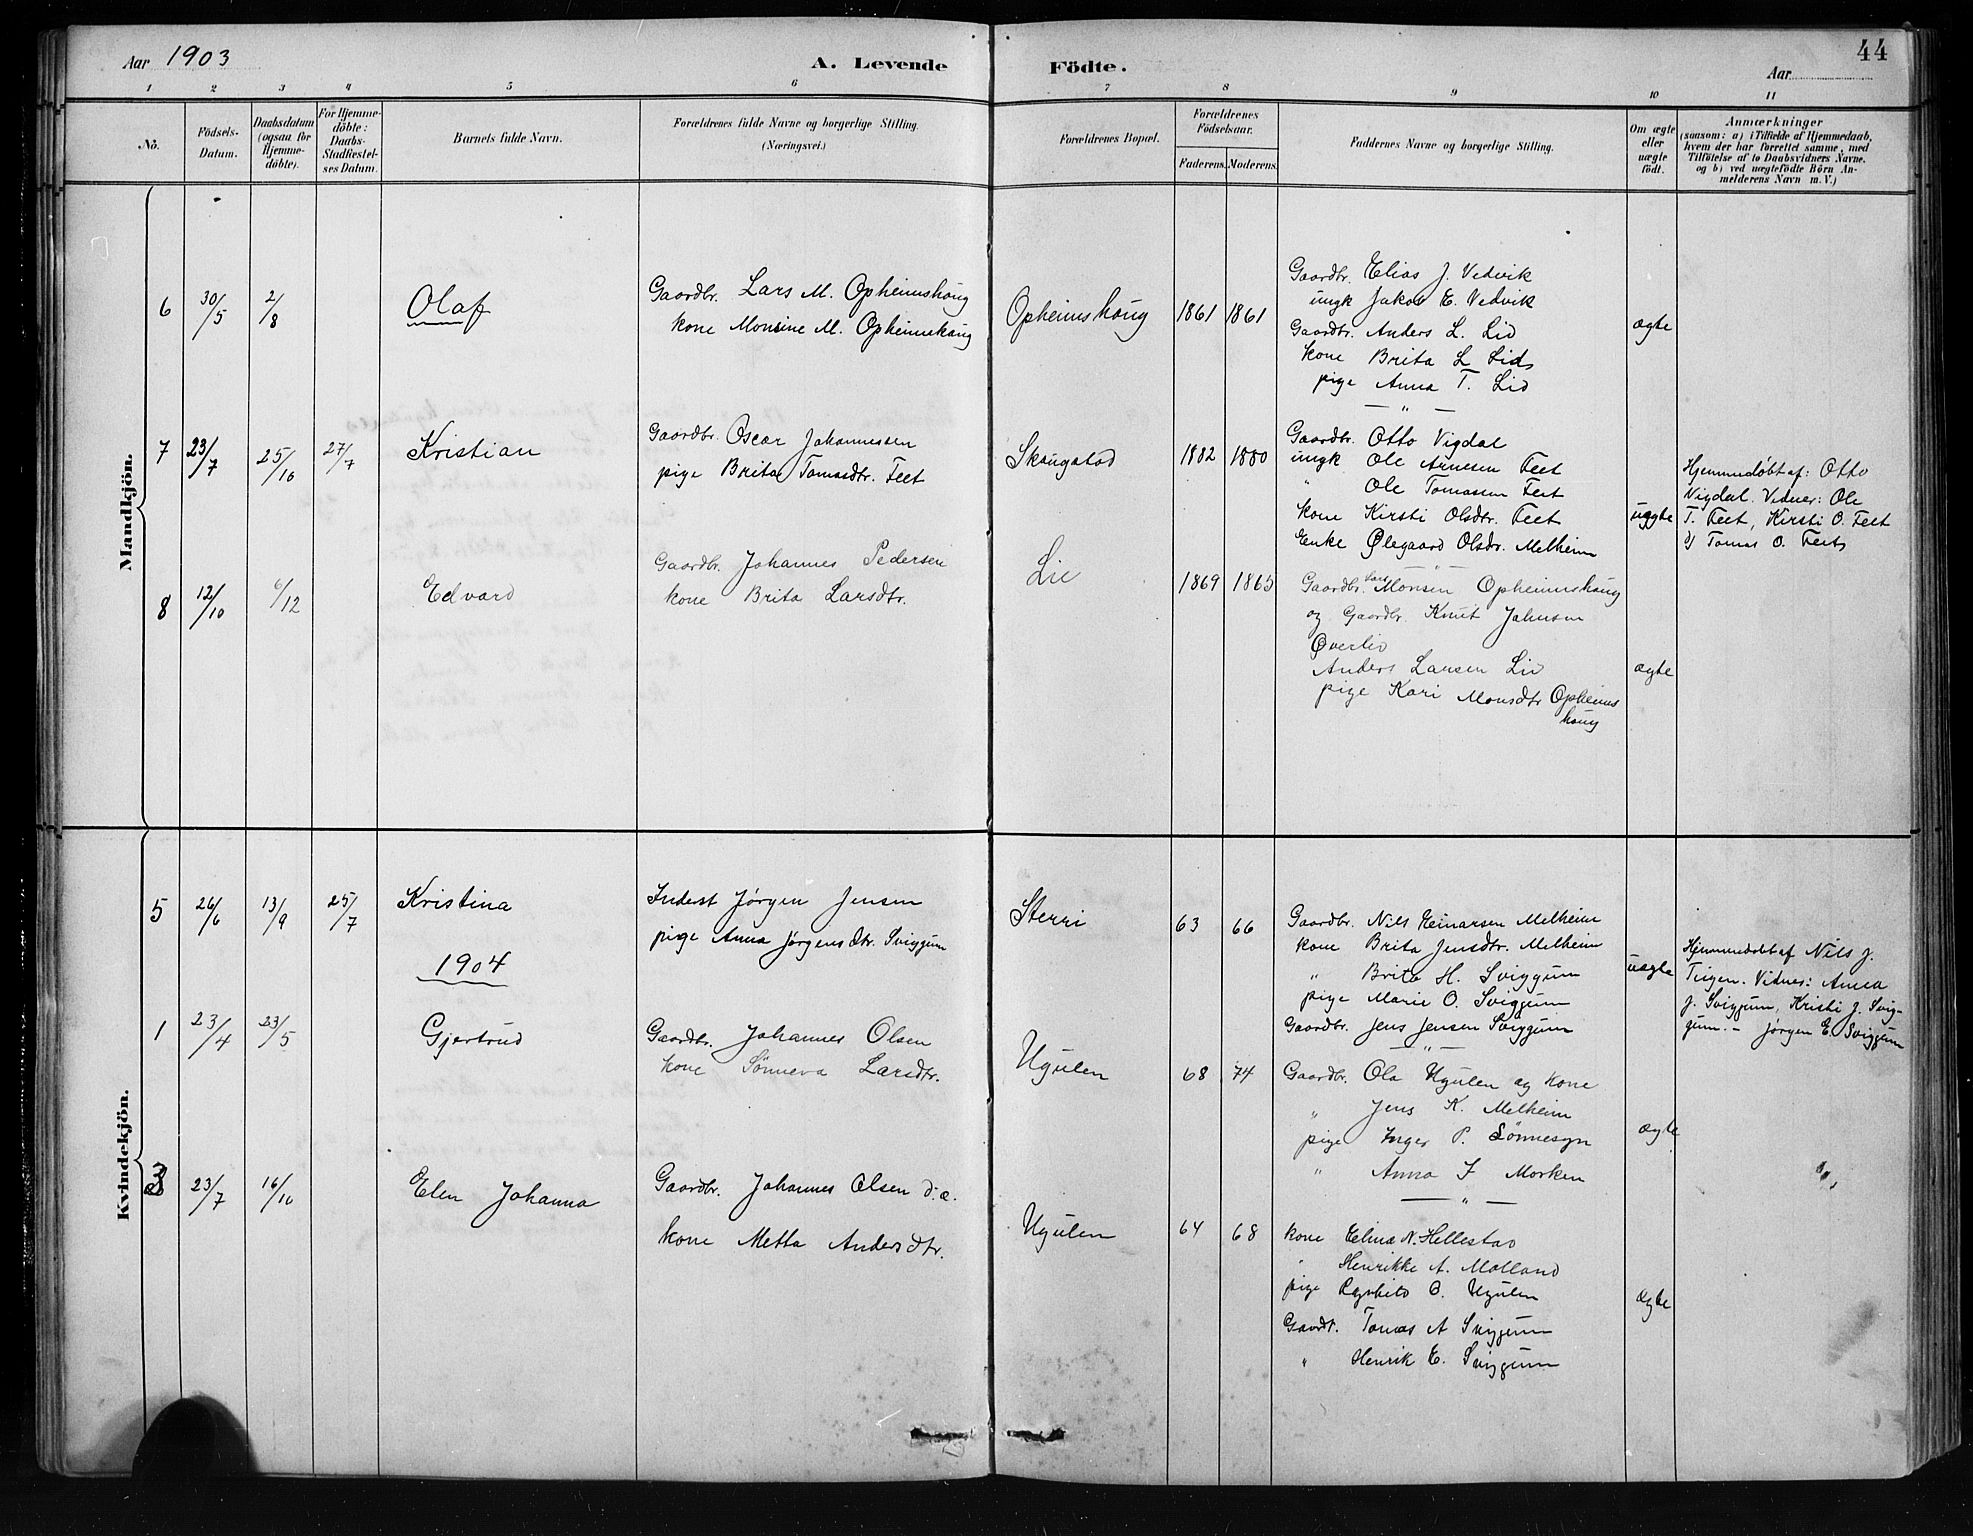 Aar 1903
A. Levende Födte.
Aar
44
1 2 3 4 5 6 7 8 9 10 11
No.
Födsels-Datum.
Daabsdatum (ogsaa for Hjemme-döbte).
For Hjemme-döbte: Daabs-Stadfestel-ses Datum.
Barnets fulde Navn.
Forældrenes fulde Navne og borgerlige Stilling. (Næringsvei.)
Forældrenes Bopæl.
Forældrenes Födselsaar.
Faderens. Moderens.
Faddernes Navne og borgerlige Stilling.
Om ægte eller uægte födt.
Anmærkninger
(saasom: a) i Tilfælde af Hjemmedaab,
hvem der har forrettet samme, med
Tilföielse af to Daabsvidners Navne.
og b) ved uægtefödte Börn An-
melderens Navn m. V.)
Mandkjön.
6 30/5 2/8 Olaf
Gaardbr. Lars M. Opheimshoug
kone Monsine M. Opheimshoug
Opheimshoug 1861 1861
Gaardbr. Elias J. Vedvik
ungk Jakob E. Vedvik
Gaardbr. Anders L. Lid
kone Brita L Lids
pige Anna T. Lid
ægte
— " —
7 23/7 25/10 27/7 Kristian
Gaardbr. Oscar Johannessen
pige Brita Tomasdtr. Feet
Skougstad 1882 1880
Gaardbr. Otto Vigdal
ungk Ole Arnesen Feet
" Ole Tomasen Feet
kone Kirsti Olsdtr. Feet
Enke Ølegaard Olsdr. Melheim
uægte
Hjemmedøbt af: Otto
Vigdal. Vidner: Ole
T. Feet, Kirsti O. Feet
Tomas O. Feet
— " —
8 12/10 6/12 Edvard
Gaardbr. Johannes Pedersen
kone Brita Larsdtr.
Lie 1869 1865
Gaardbr. Lars Monsen Opheimshoug
og Gaardbr. Knut Johnsen
Øverlid
Anders Larsen Lid
pige Kari Monsdtr Opheims
houg
ægte
Kvindekjön.
5 26/6 13/9 25/7 Kristina
Inderst Jørgen Jensen
pige Anna Jørgensdtr. Sviggum
Sterri 63 66
Gaardbr. Nils Einarsen Melheim
kone Brita Jensdtr. Melheim
" Brita H. Sviggum
pige Marie O. Sviggum
Gaardbr. Jens Jensen Sviggum
uægte
Hjemmedøbt af Nils J.
Teigen. Vidner: Anna
J. Sviggum, Kristi J. Svig-
gum. – Jørgen E. Sviggum
— " —
1904
1 23/4 23/5 Gjertrud
Gaardbr. Johannes Olsen
kone Sønneva Larsdtr.
Ugulen 68 74
Gaardbr. Ola Ugulen og kone
" Jens K. Melheim
pige Inger P. Sønnesyn
" Anna I Morken
ægte
— " —
3 23/7 16/10 Elen Johanna
Gaardbr. Johannes Olsen d.æ.
kone Metta Andersdtr.
Ugulen 64 68
kone Elina N. Hellestad
" Henrikke A. Molland
pige Ragnhild O. Ugulen
Gaardbr. Tomas A Sviggum
" Henrik E. Sviggum
ægte